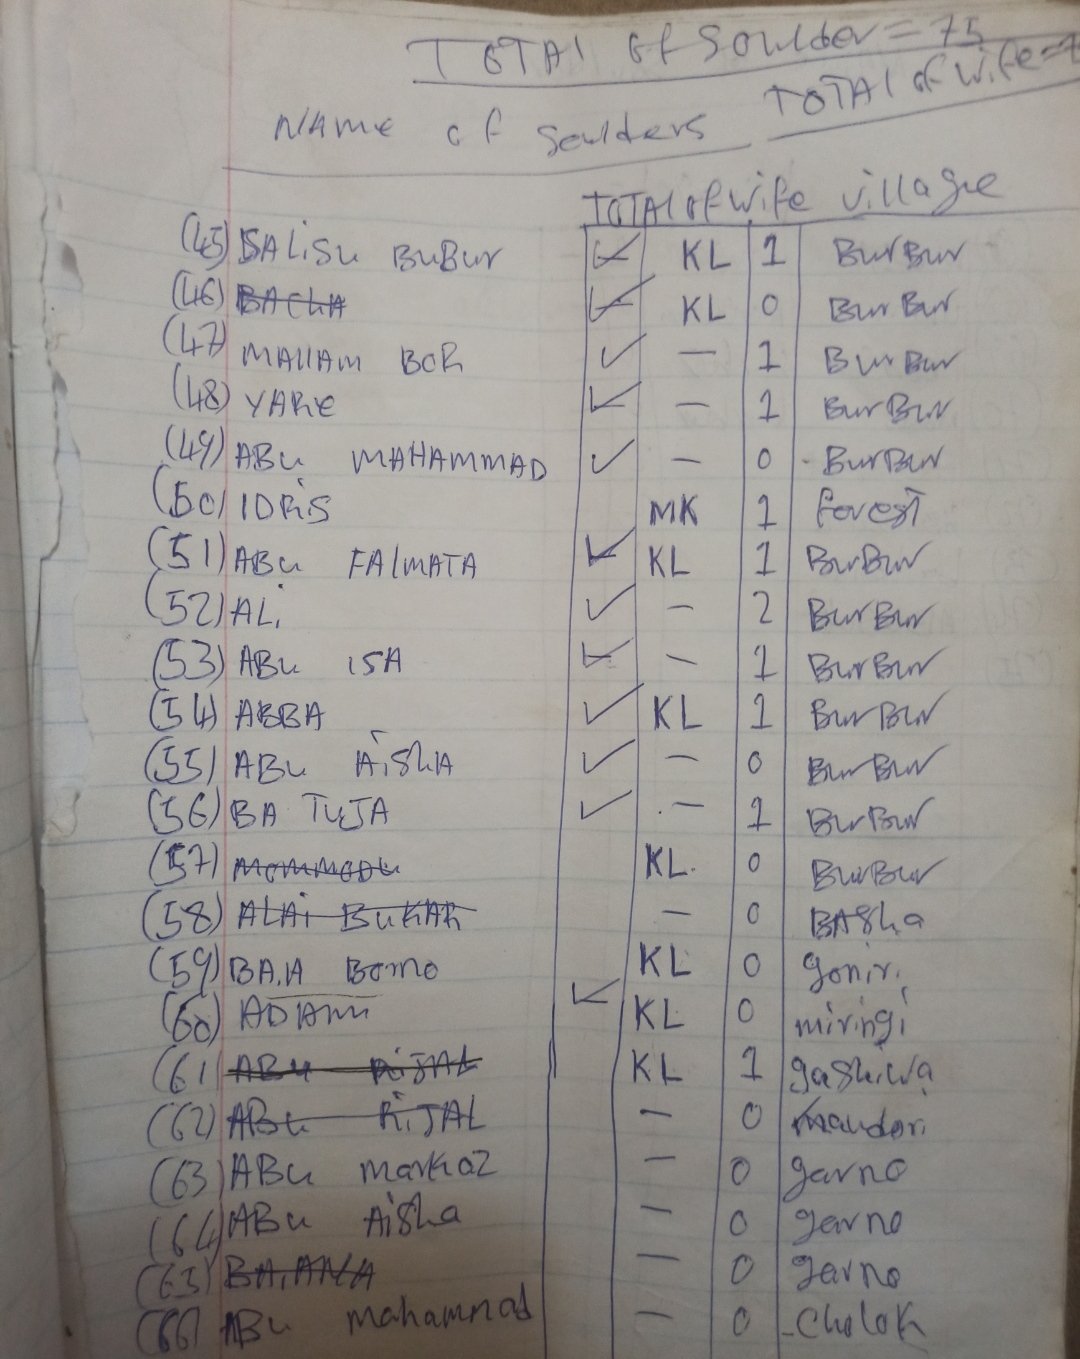 TOTAL of Soulder = 75
TOTAL of wife =
NAME of Soulders
TOTAL of wife village
(45) SALISU BUBUR ✓ KL 1 BurBur
(46) BACHA ✓ KL 0 BurBur
(47) MALLAM BOR ✓ — 1 BurBur
(48) YARE ✓ — 1 BurBur
(49) ABU MAHAMMAD ✓ — 0 BurBur
(50) IDRIS MK 1 forest
(51) ABU FALMATA ✓ KL 1 BurBur
(52) ALi ✓ — 2 BurBur
(53) ABU ISA ✓ — 1 BurBur
(54) ABBA ✓ KL 1 BurBur
(55) ABU AiShA ✓ — 0 BurBur
(56) BA TUJA ✓ — 1 BurBur
(57) Mommodu KL 0 BurBur
(58) ALAi BUKAR — 0 BASha
(59) BA.A Bomo KL 0 goniri
(60) ADAmu ✓ KL 0 miringi
(61) ABU RiJAL KL 1 gashiwa
(62) ABU RiJAL — 0 mandari
(63) ABU markaz — 0 garno
(64) ABU AiSha — 0 garno
(65) BA.ANA — 0 garno
(66) ABU mahammad — 0 Cholok